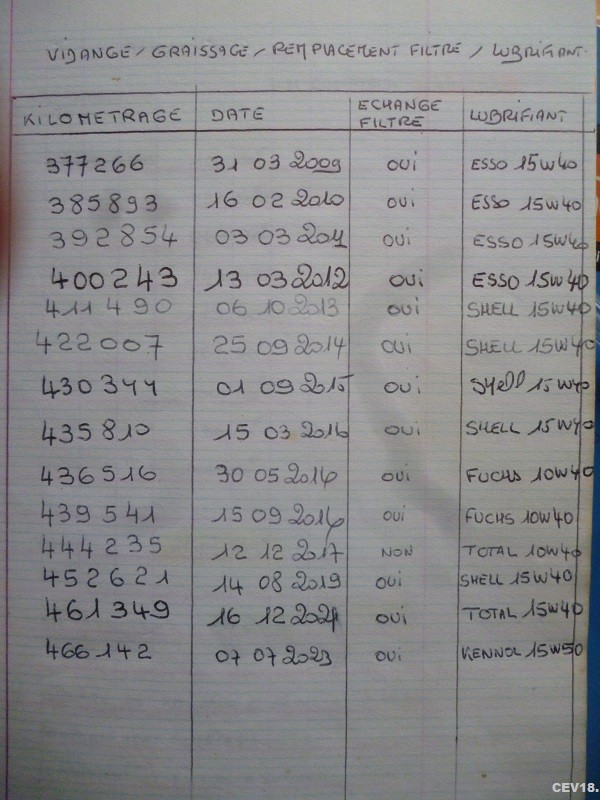 VIDANGE / GRAISSAGE / REMPLACEMENT FILTRE / LUBRIFIANT
KILOMETRAGE DATE ECHANGE FILTRE LUBRIFIANT
377266 31 03 2009 OUI ESSO 15W40
385893 16 02 2010 OUI ESSO 15W40
392854 03 03 2011 OUI ESSO 15W40
400243 13 03 2012 OUI ESSO 15W40
411490 06 10 2013 OUI SHELL 15W40
422007 25 09 2014 OUI SHELL 15W40
430344 01 09 2015 OUI SHELL 15W40
435810 15 03 2016 OUI SHELL 15W40
436516 30 05 2016 OUI FUCHS 10W40
439541 15 09 2016 OUI FUCHS 10W40
444235 12 12 2017 NON TOTAL 10W40
452621 14 08 2019 OUI SHELL 15W40
461349 16 12 2021 OUI TOTAL 15W40
466142 07 07 2023 OUI KENNOL 15W50
CEV18.